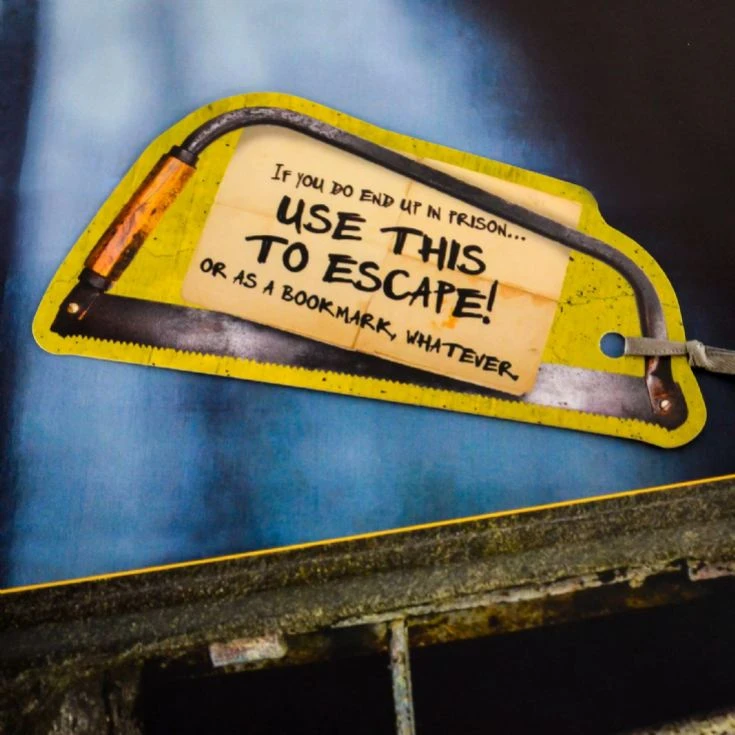 IF YOU DO END UP IN PRISON...
USE THIS
TO ESCAPE!
OR AS A BOOKMARK, WHATEVER.